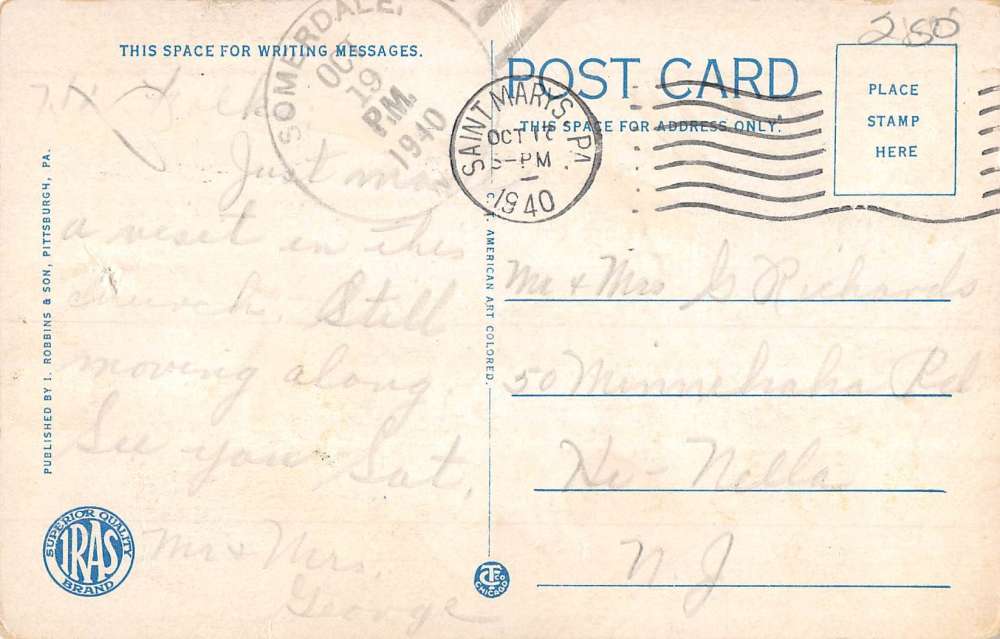 THIS SPACE FOR WRITING MESSAGES.
SOMERDALE,
OCT
19
P.M.
1940
N
250
POST CARD
THIS SPACE FOR ADDRESS ONLY.
PLACE
STAMP
HERE
SAINT MARYS, PA.
OCT
5-PM
1940
Just
a visit in this
church. Still
moving along
See you Sat,
Mr & Mrs
George
Mr & Mrs G Richards
50 Minnehaha Rd
Hi-Nella
N J
PUBLISHED BY I. ROBBINS & SON, PITTSBURGH, PA.
C.T. AMERICAN ART COLORED.
SUPERIOR QUALITY
IRAS
BRAND
CT CO
CHICAGO